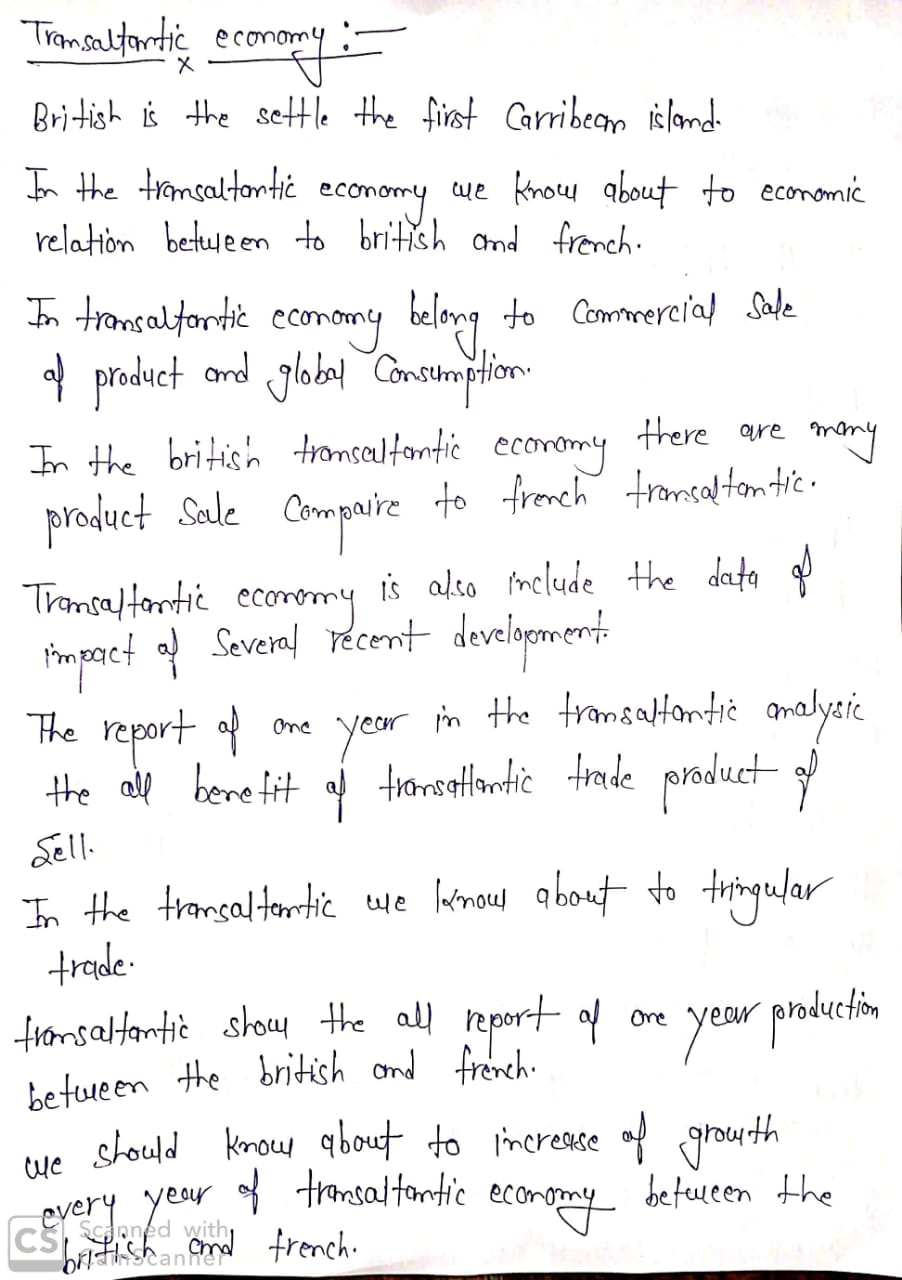 Transaltantic economy :-
x
British is the settle the first Carribean island.
In the transaltantic economy we know about to economic
relation between to british and french.
In transaltantic economy belong to Commercial Sale
of product and global Consumption.
In the british transaltantic economy there are many
product Sale Compaire to french transaltantic.
Transaltantic economy is also include the data of
impact of Several recent development.
The report of one year in the transaltantic analysic
the all benefit of transatlantic trade product of
Sell.
In the transaltantic we know about to tringular
trade.
transaltantic show the all report of one year production
between the british and french.
we should know about to increase of growth
every year of transaltantic economy between the
british and french.
CS Scanned with
CamScanner